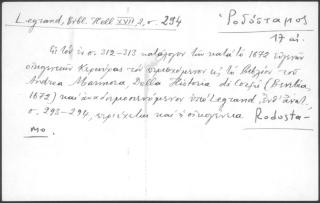 Legrand, Bibl. Hell. XVII, 2, σ. 294
Ῥοδόσταμος
17 αἰ.
Εἰς τὸν ἐν σ. 212-213 κατάλογον τῶν κατὰ τὸ 1672 εὐγενῶν
οἰκογενειῶν Κερκύρας τὸν περιεχόμενον εἰς τὸ βιβλίον τοῦ
Andrea Marmora, Della Historia di Corfù (Venetia,
1672) καὶ ἀναδημοσιευόμενον ὑπὸ Legrand,
σ. 293-294, περιέχεται καὶ ἡ οἰκογένεια Rodosta-
mo.